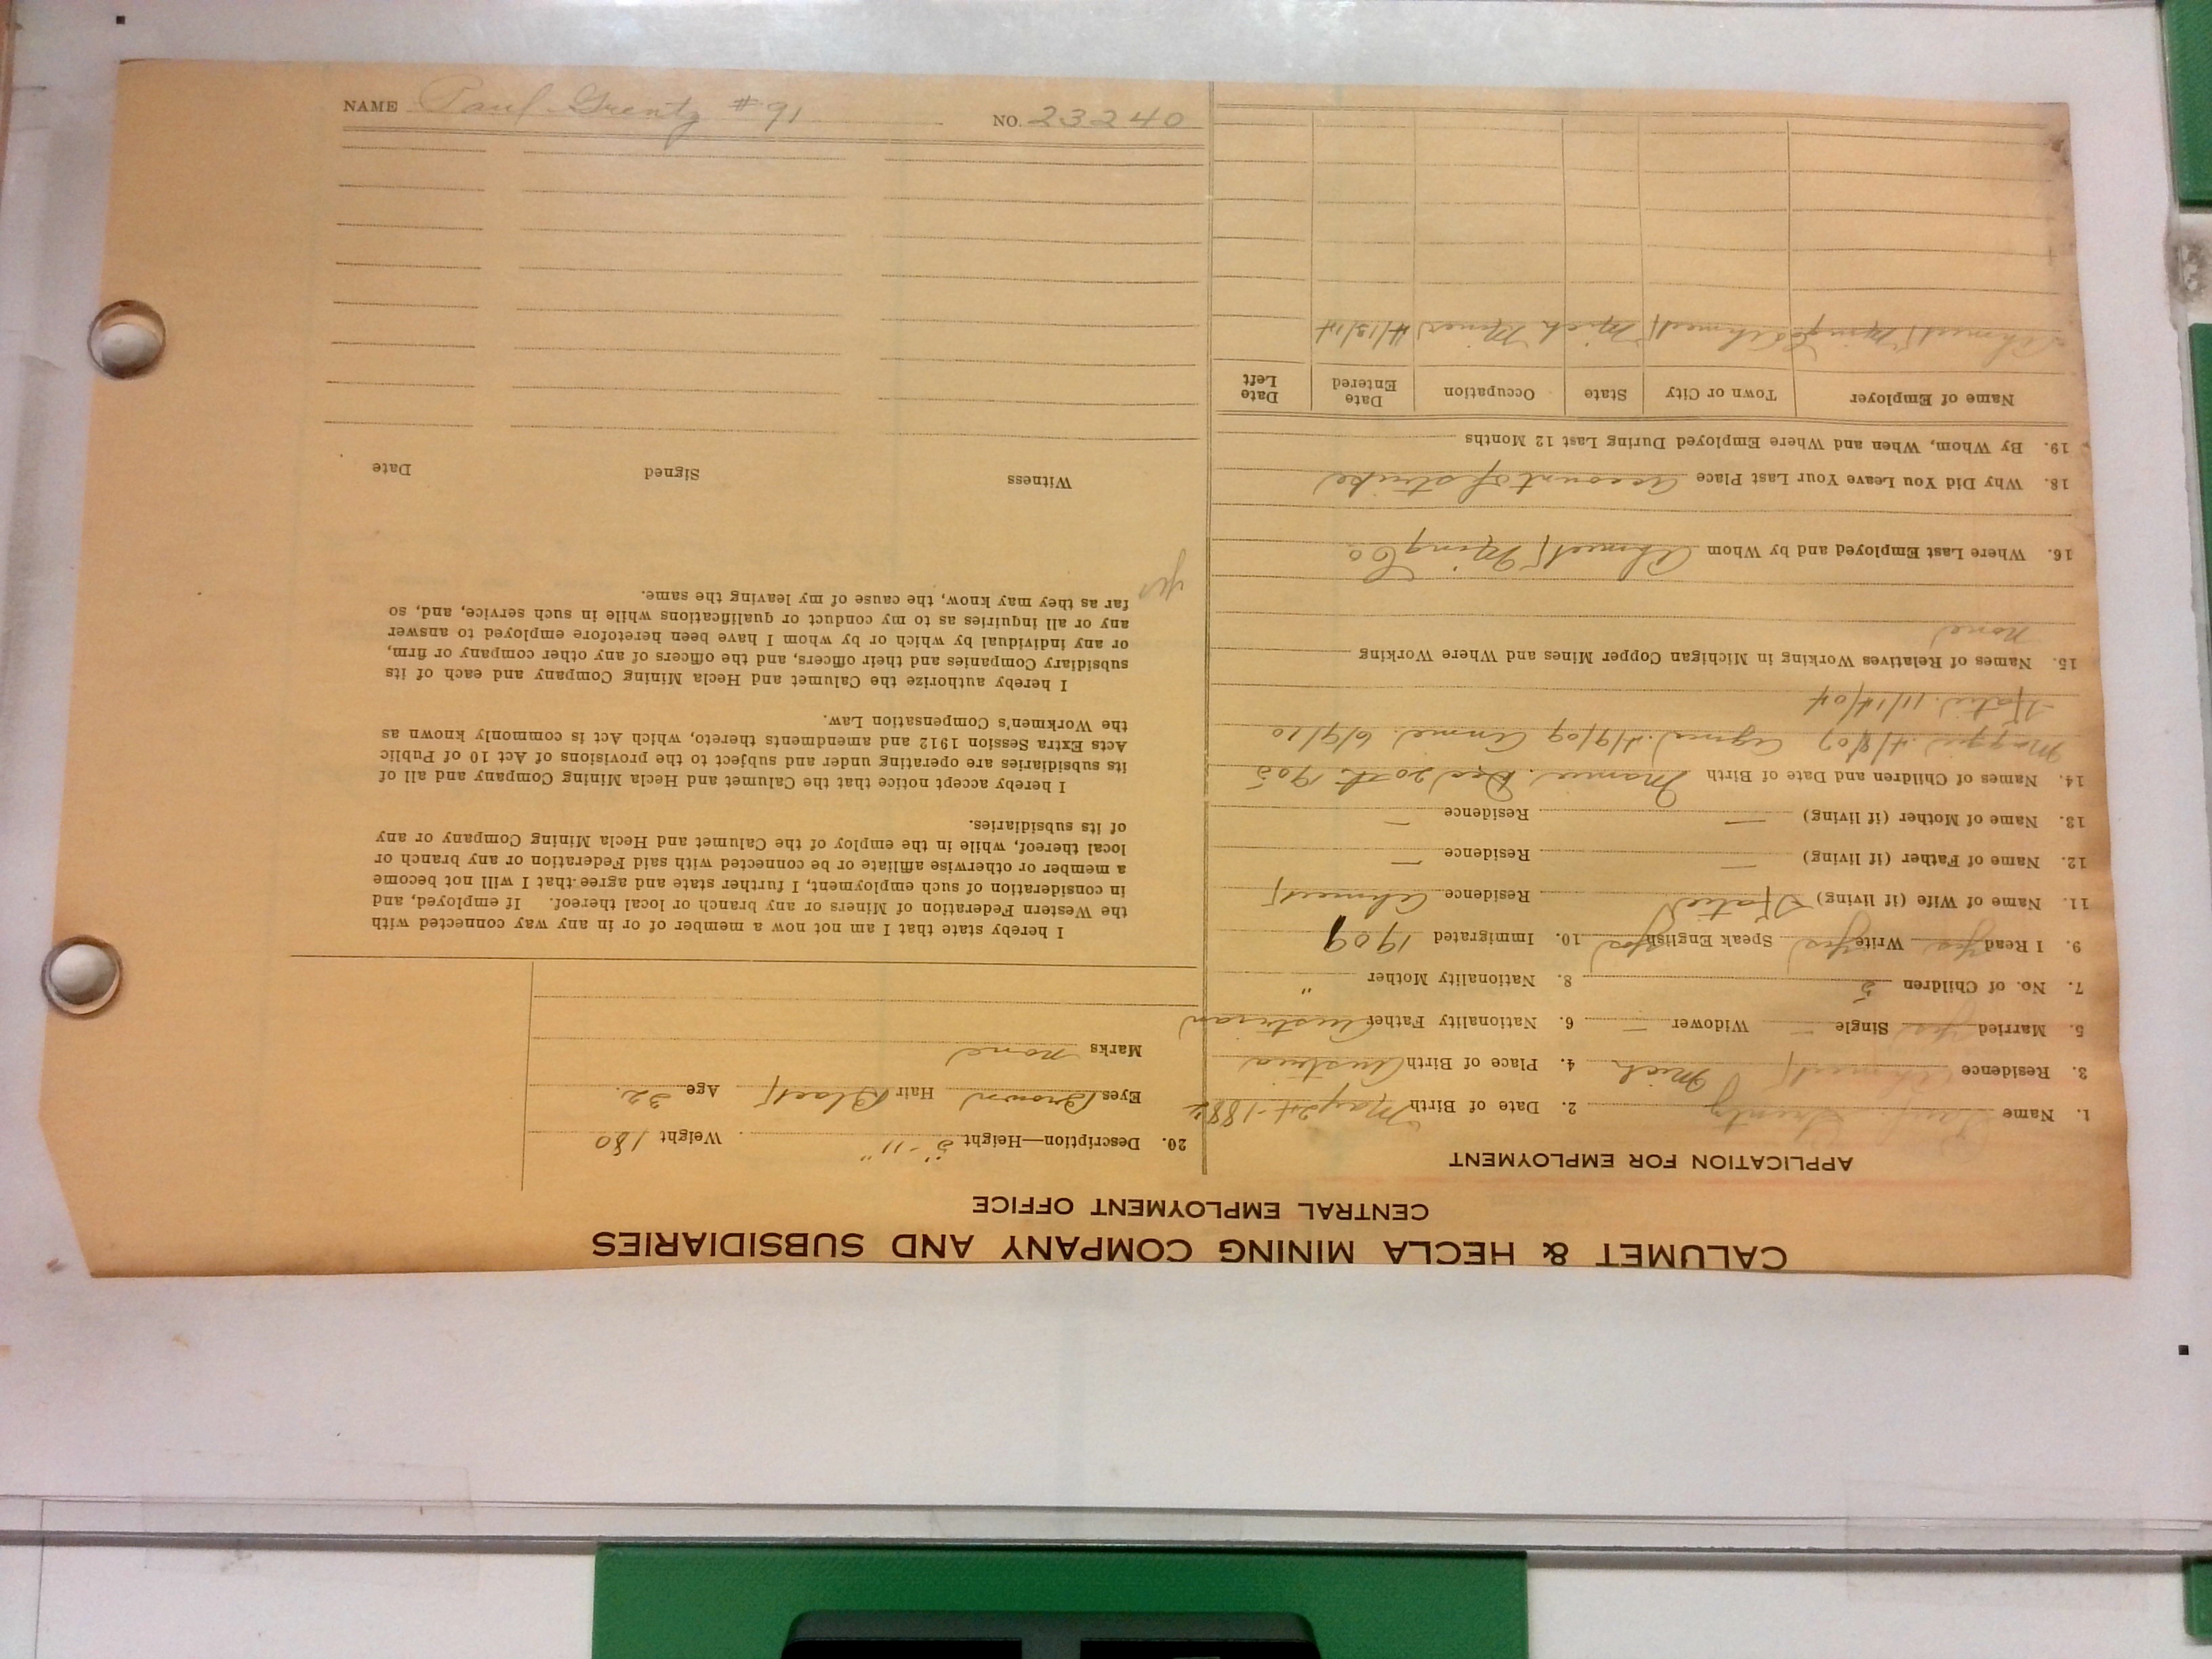 CALUMET & HECLA MINING COMPANY AND SUBSIDIARIES
CENTRAL EMPLOYMENT OFFICE
APPLICATION FOR EMPLOYMENT
1. Name Paul Grentz 2. Date of Birth May 24-1882
3. Residence Ahmeek Mich 4. Place of Birth Austria
5. Married yes Single — Widower — 6. Nationality Father Austrian
7. No. of Children 5 8. Nationality Mother "
9. I Read yes Write yes Speak English yes 10. Immigrated 1909
11. Name of Wife (if living) Katie Residence Ahmeek
12. Name of Father (if living) — Residence —
13. Name of Mother (if living) — Residence —
14. Names of Children and Date of Birth Mamie. Dec 20th 1905
Maggie. 4/8/07 Agnes. 4/9/09 Annie. 6/9/10
Katie. 11/14/04
15. Names of Relatives Working in Michigan Copper Mines and Where Working
none
16. Where Last Employed and by Whom Ahmeek Ming Co
18. Why Did You Leave Your Last Place Account of strike
19. By Whom, When and Where Employed During Last 12 Months
Name of Employer Town or City State Occupation Date Entered Date Left
Ahmeek Ming Co Ahmeek Mich Miner 4/13/14
20. Description—Height 5"-11" Weight 180
Eyes Brown Hair Black Age 32.
Marks none
I hereby state that I am not now a member of or in any way connected with
the Western Federation of Miners or any branch or local thereof. If employed, and
in consideration of such employment, I further state and agree that I will not become
a member or otherwise affiliate or be connected with said Federation or any branch or
local thereof, while in the employ of the Calumet and Hecla Mining Company or any
of its subsidiaries.
I hereby accept notice that the Calumet and Hecla Mining Company and all of
its subsidiaries are operating under and subject to the provisions of Act 10 of Public
Acts Extra Session 1912 and amendments thereto, which Act is commonly known as
the Workmen's Compensation Law.
I hereby authorize the Calumet and Hecla Mining Company and each of its
subsidiary Companies and their officers, and the officers of any other company or firm,
or any individual by which or by whom I have been heretofore employed to answer
any or all inquiries as to my conduct or qualifications while in such service, and, so
far as they may know, the cause of my leaving the same.
yes
Witness Signed Date
NAME Paul Grentz #91 NO. 23240